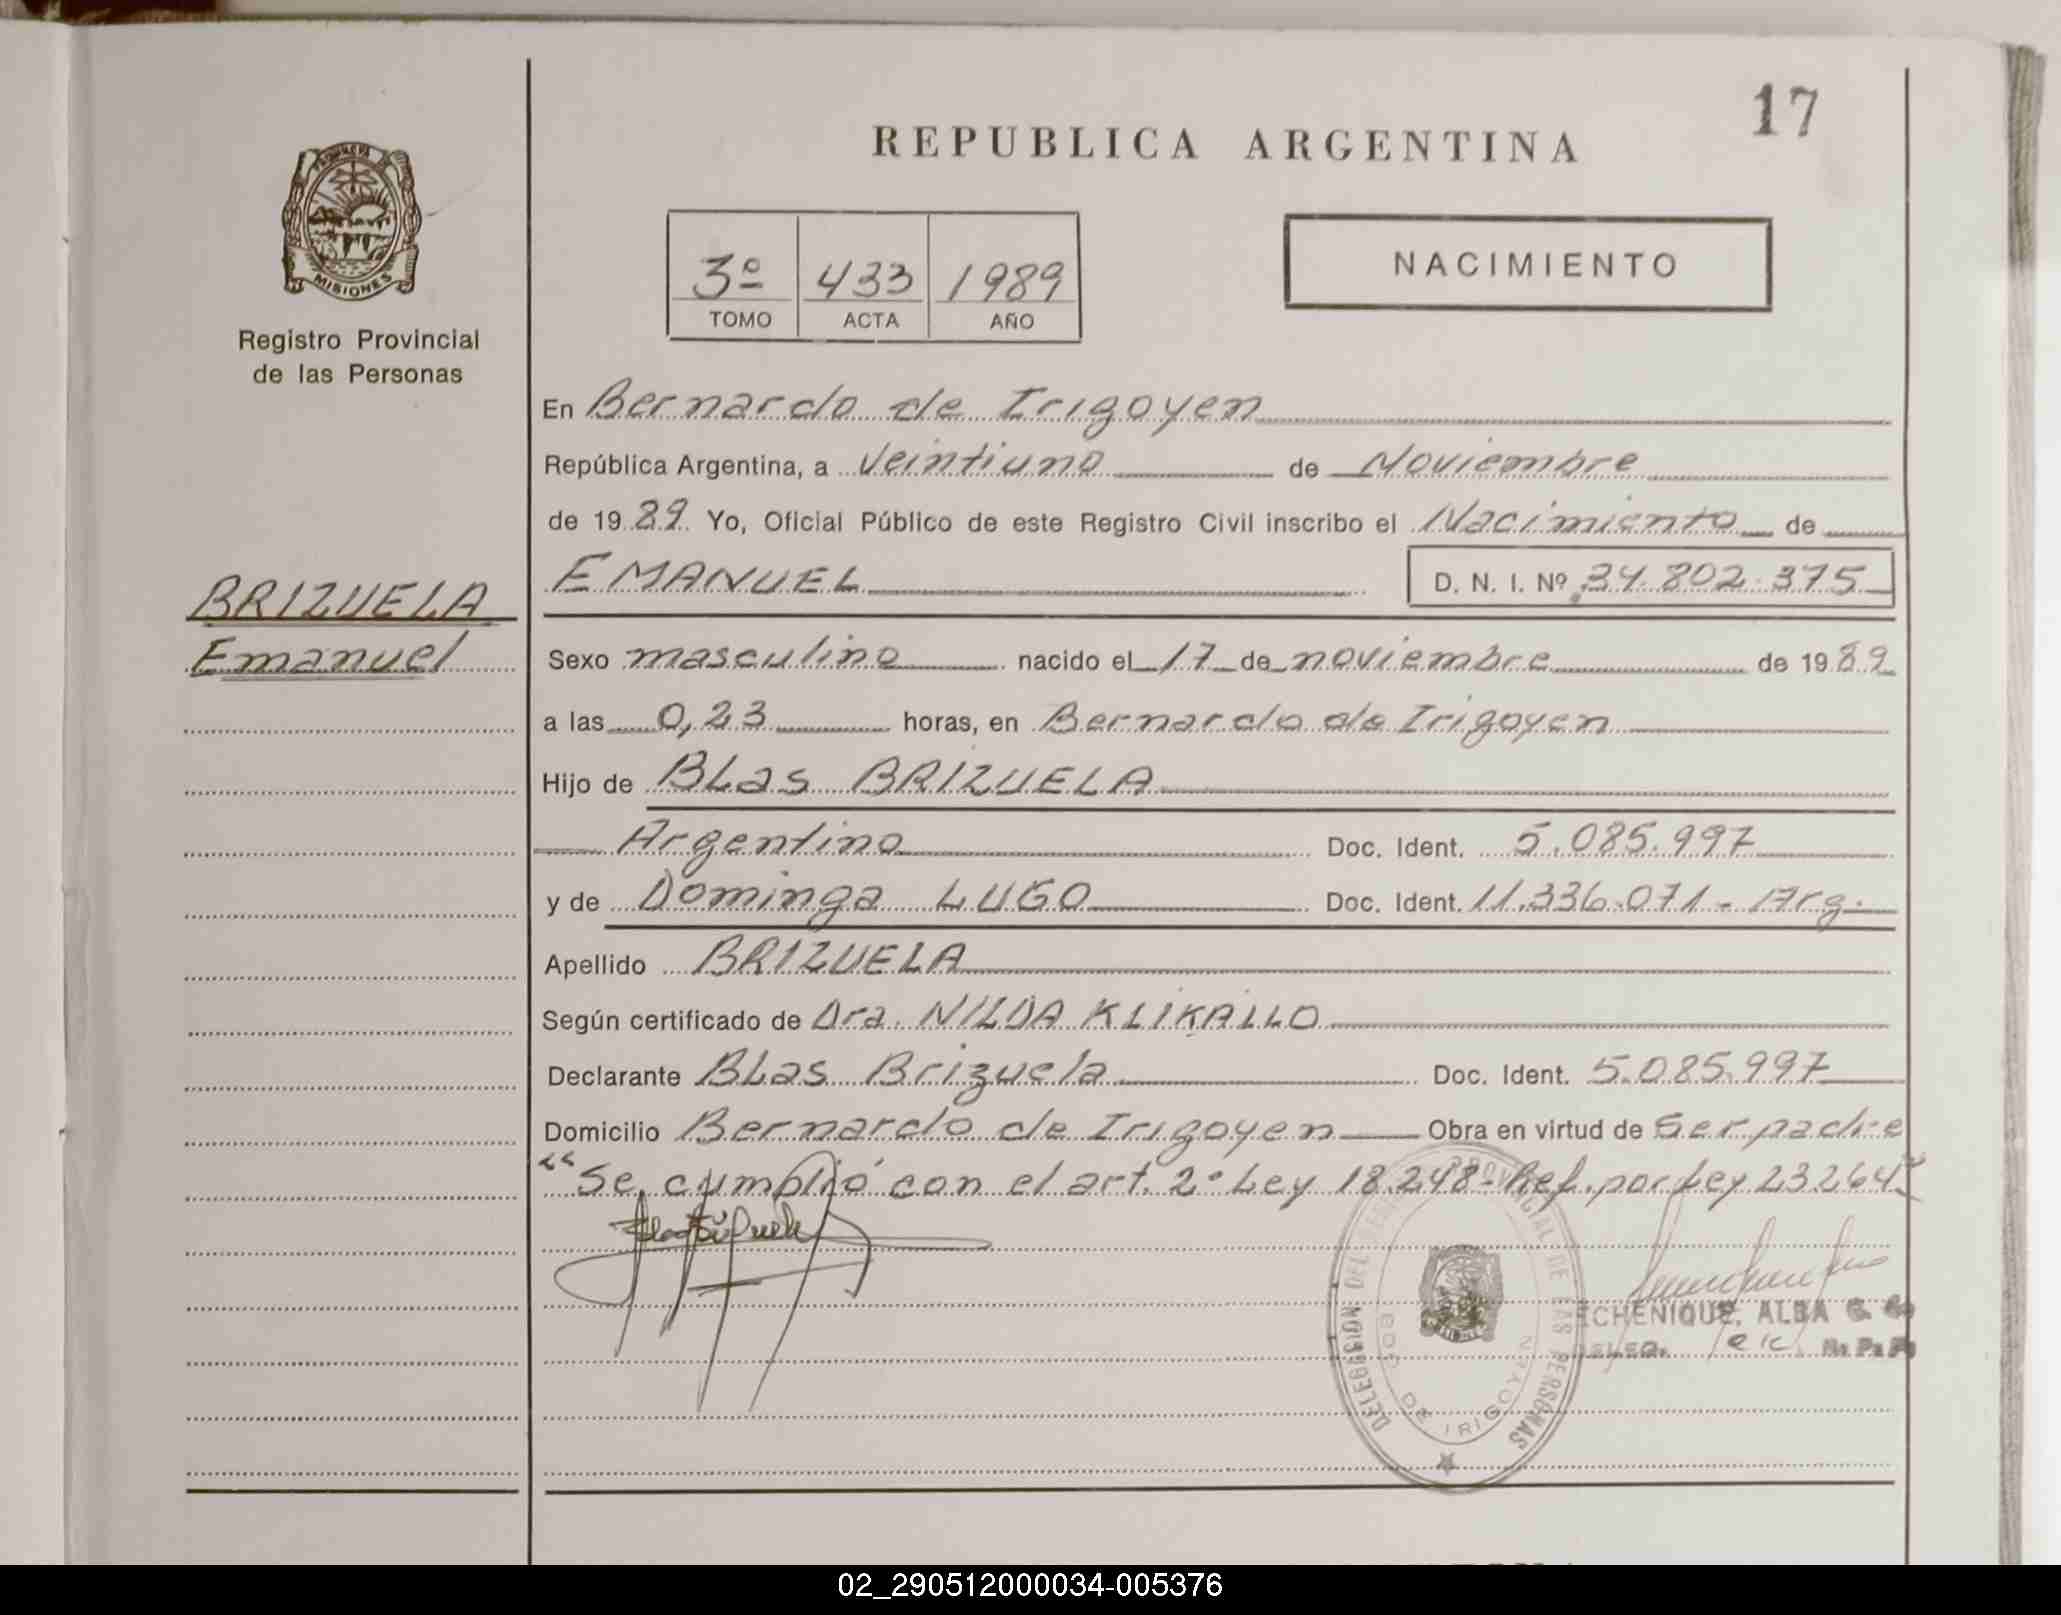 17
REPUBLICA ARGENTINA
PROVINCIA
MISIONES
Registro Provincial
de las Personas
3º 433 1989
TOMO ACTA AÑO
NACIMIENTO
En Bernardo de Irigoyen
República Argentina, a Veintiuno de Noviembre
de 1989 Yo, Oficial Público de este Registro Civil inscribo el Nacimiento de
BRIZUELA
Emanuel
EMANUEL D. N. I. Nº 34.802.375
Sexo masculino nacido el 17 de noviembre de 1989
a las 0,23 horas, en Bernardo de Irigoyen
Hijo de BLas BRIZUELA
Argentino Doc. Ident. 5.085.997
y de Dominga LUGO Doc. Ident. 11.336.071 - Arg.
Apellido BRIZUELA
Según certificado de Dra. NILDA KLIKAILO
Declarante BLas Brizuela Doc. Ident. 5.085.997
Domicilio Bernardo de Irigoyen Obra en virtud de Ser padre
"Se cumplió con el art. 2º Ley 18.248 - Ref. por Ley 23264"
DEL PROVINCIAL DE LAS PERSONAS
BDO. DE IRIGOYEN
ECHENIQUE, ALBA G.
DELEG. R. P. P.
02_290512000034-005376